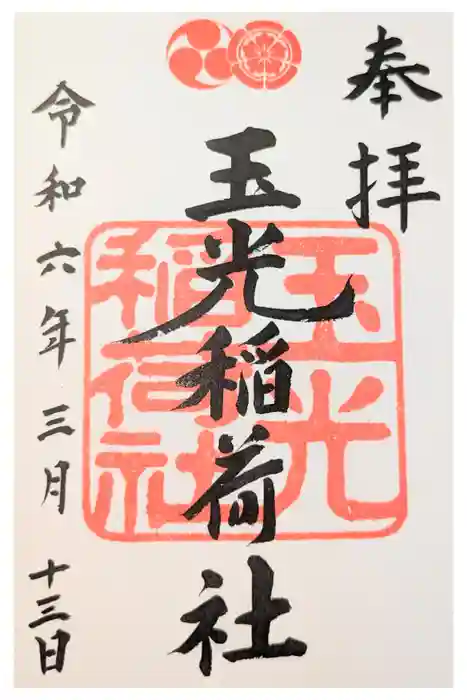 奉拝
玉光稲荷社
玉光
稲荷社
令和六年三月十三日